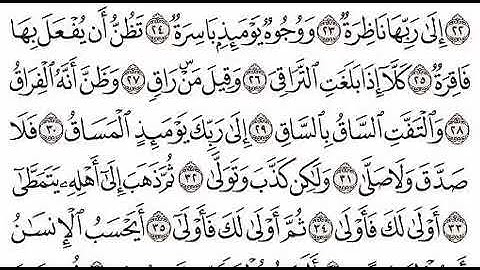 ٢٢ إِلَىٰ رَبِّهَا نَاظِرَةٌ ٢٣ وَوُجُوهٌ يَوْمَئِذٍۭ بَاسِرَةٌ ٢٤ تَظُنُّ أَن يُفْعَلَ بِهَا
فَاقِرَةٌ ٢٥ كَلَّآ إِذَا بَلَغَتِ ٱلتَّرَاقِىَ ٢٦ وَقِيلَ مَنْ رَاقٍ ٢٧ وَظَنَّ أَنَّهُ ٱلْفِرَاقُ
٢٨ وَٱلْتَفَّتِ ٱلسَّاقُ بِٱلسَّاقِ ٢٩ إِلَىٰ رَبِّكَ يَوْمَئِذٍ ٱلْمَسَاقُ ٣٠ فَلَا
صَدَّقَ وَلَا صَلَّىٰ ٣١ وَلَٰكِن كَذَّبَ وَتَوَلَّىٰ ٣٢ ثُمَّ ذَهَبَ إِلَىٰٓ أَهْلِهِۦ يَتَمَطَّىٰٓ
٣٣ أَوْلَىٰ لَكَ فَأَوْلَىٰ ٣٤ ثُمَّ أَوْلَىٰ لَكَ فَأَوْلَىٰٓ ٣٥ أَيَحْسَبُ ٱلْإِنسَٰنُ